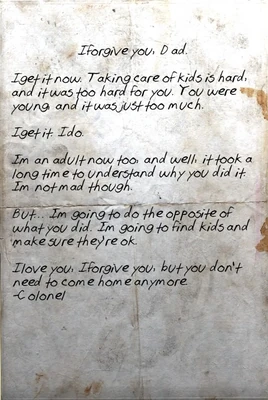 I forgive you, Dad.
I get it now. Taking care of kids is hard,
and it was too hard for you. You were
young, and it was just too much.
I get it. I do.
Im an adult now too, and well, it took a
long time to understand why you did it.
Im not mad though.
But... Im going to do the opposite of
what you did. Im going to find kids and
make sure they're ok.
I love you, I forgive you, but you don't
need to come home anymore
-Colonel